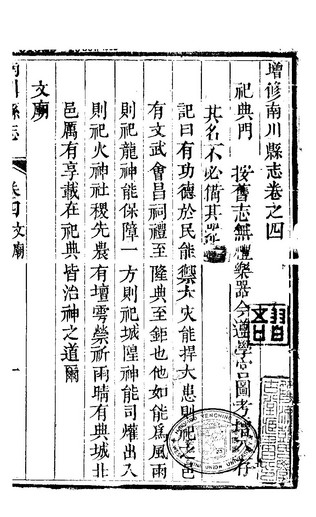 增修南川縣志卷之四
祀典門 按舊志無禮樂器今遵學宮圖考增入存
其名不必備其器
記曰有功德於民能禦大災能捍大患則祀之邑
有文武會昌祠禮至隆典至鉅也他如能爲風雨
則祀龍神能保障一方則祀城隍神能司爟出入
則祀火神社稷先農有壇雩禜祈雨晴有典城北
邑厲有享載在祀典皆治神之道爾
文廟
南川縣志
卷四文廟
一